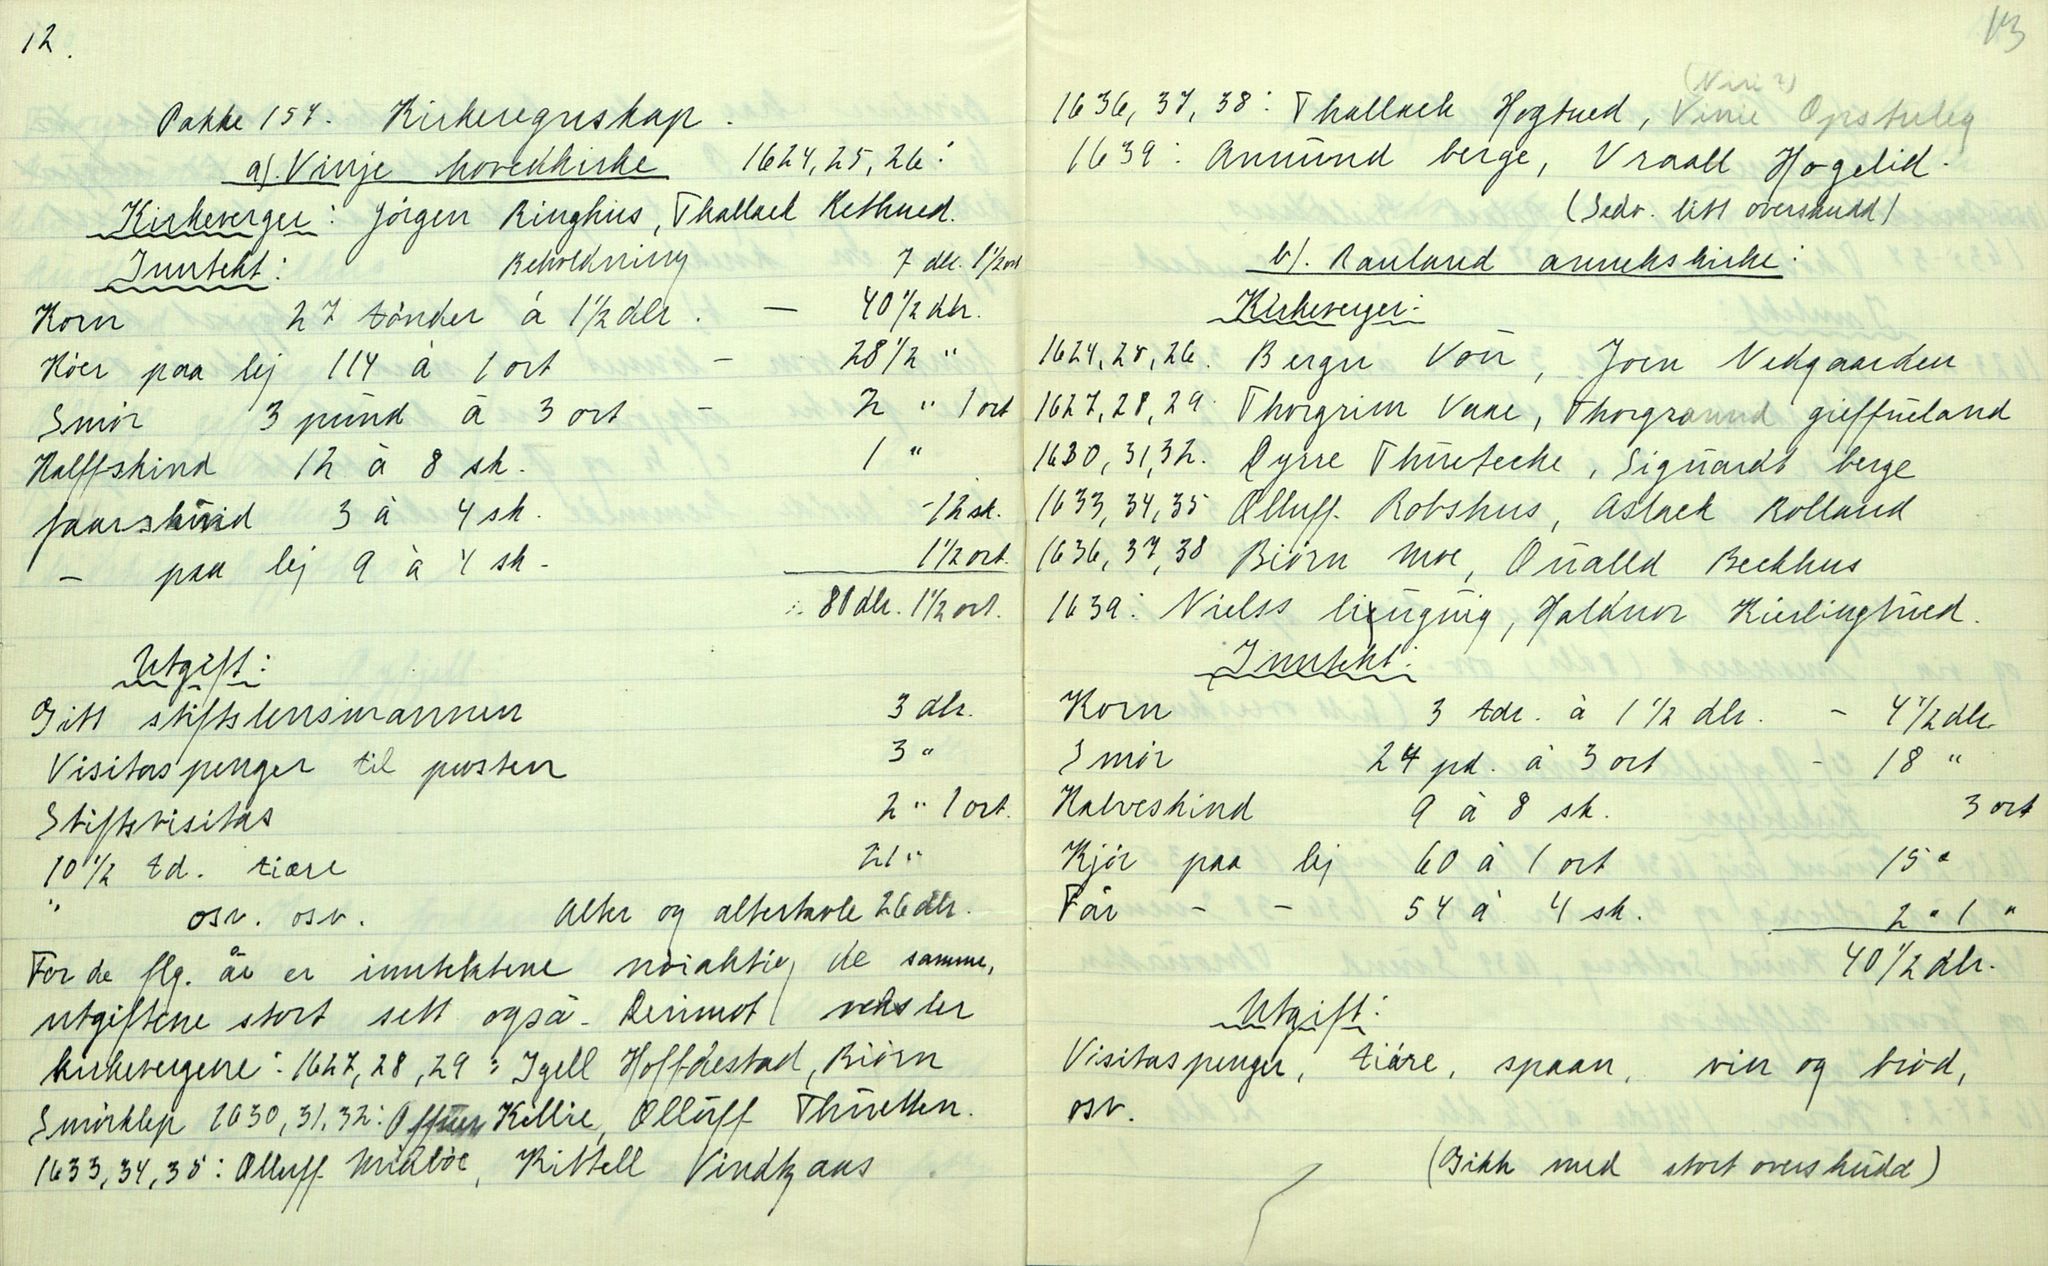 12.
Pakke 154. Kirkeregnskap.
a). Vinje hovedkirke 1624, 25, 26:
Kirkeverger: Jörgen Ringhus, Thallack Rethued.
Inntekt: Beholdning 7 dlr. 1 1/2 ort
Korn 27 tönder á 1 1/2 dlr. — 40 1/2 dlr.
Köer paa lej 114 á 1 ort - 28 1/2 "
Smör 3 pund á 3 ort - 2 " 1 ort
Kalffskind 12 á 8 sk. 1 "
faarskind 3 á 4 sk. - 12 sk.
- paa lej 9 á 4 sk - 1 1/2 ort.
81 dlr. 1 1/2 ort.
Utgift:
Gitt stiftslensmannen 3 dlr.
Visitaspenger til presten 3 "
Stiftsvisitas 2 " 1 ort.
10 1/2 td. tiære 21 "
" osv. osv. Alter og altertavle 26 dlr.
For de flg. år er inntektene nöiaktig de samme,
utgiftene stort sett også. Derimot veksler
kirkevergene: 1627, 28, 29: Igell Hoffdestad, Biörn
Smörklep 1630, 31, 32: Killie, Olluff Thuetten.
1633, 34, 35: Olluff Midböe, Kittell Vindkaas
13
(Nirie?)
1636, 37, 38: Thallack Hogtued, Vinie Opstuleg
1639: Amund berge, Vraall Hogelid.
(Sedv. litt overskudd)
b). Rauland annekskirke:
Kirkeverger:
1624, 25, 26. Bergu Vöü, Joen Nedgaarden
1627, 28, 29. Thorgrim Vaae, Thorgraund gieffueland
1630, 31, 32. Dyrre Thuetecke, Siguardt berge
1633, 34, 35 Olluff Robshus, Aslack Rolland
1636, 37, 38 Biörn Moe, Oüalld Beckhus
1639: Nielss, Halduor Kierlingtued.
Inntekt:
Korn 3 tdr. á 1 1/2 dlr. - 4 1/2 dlr.
Smör 24 pd. á 3 ort - 18 "
Kalveskind 9 á 8 sk. 3 ort
Kjör paa lej 60 á 1 ort 15 "
Får - - 54 á 4 sk. 2 " 1 "
40 1/2 dlr.
Utgift:
Visitaspenger, tiäre, spaan, vin og bröd,
osv.
(Gikk med stort overskudd)